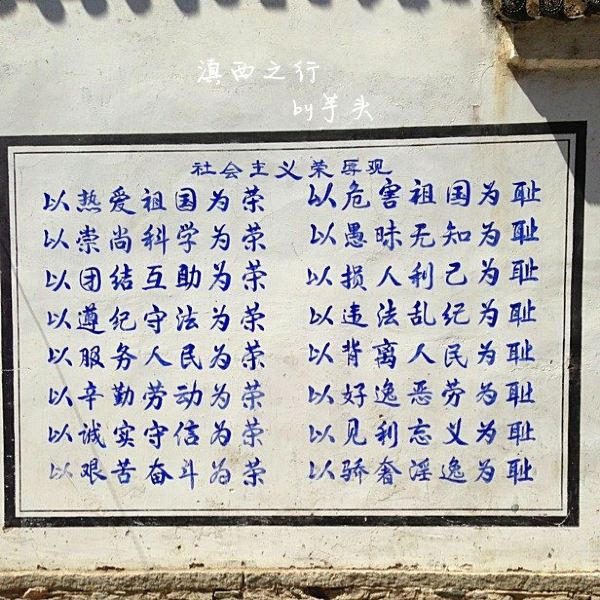 滇西之行
by芋头
社会主义荣辱观
以热爱祖国为荣 以危害祖国为耻
以崇尚科学为荣 以愚昧无知为耻
以团结互助为荣 以损人利己为耻
以遵纪守法为荣 以违法乱纪为耻
以服务人民为荣 以背离人民为耻
以辛勤劳动为荣 以好逸恶劳为耻
以诚实守信为荣 以见利忘义为耻
以艰苦奋斗为荣 以骄奢淫逸为耻